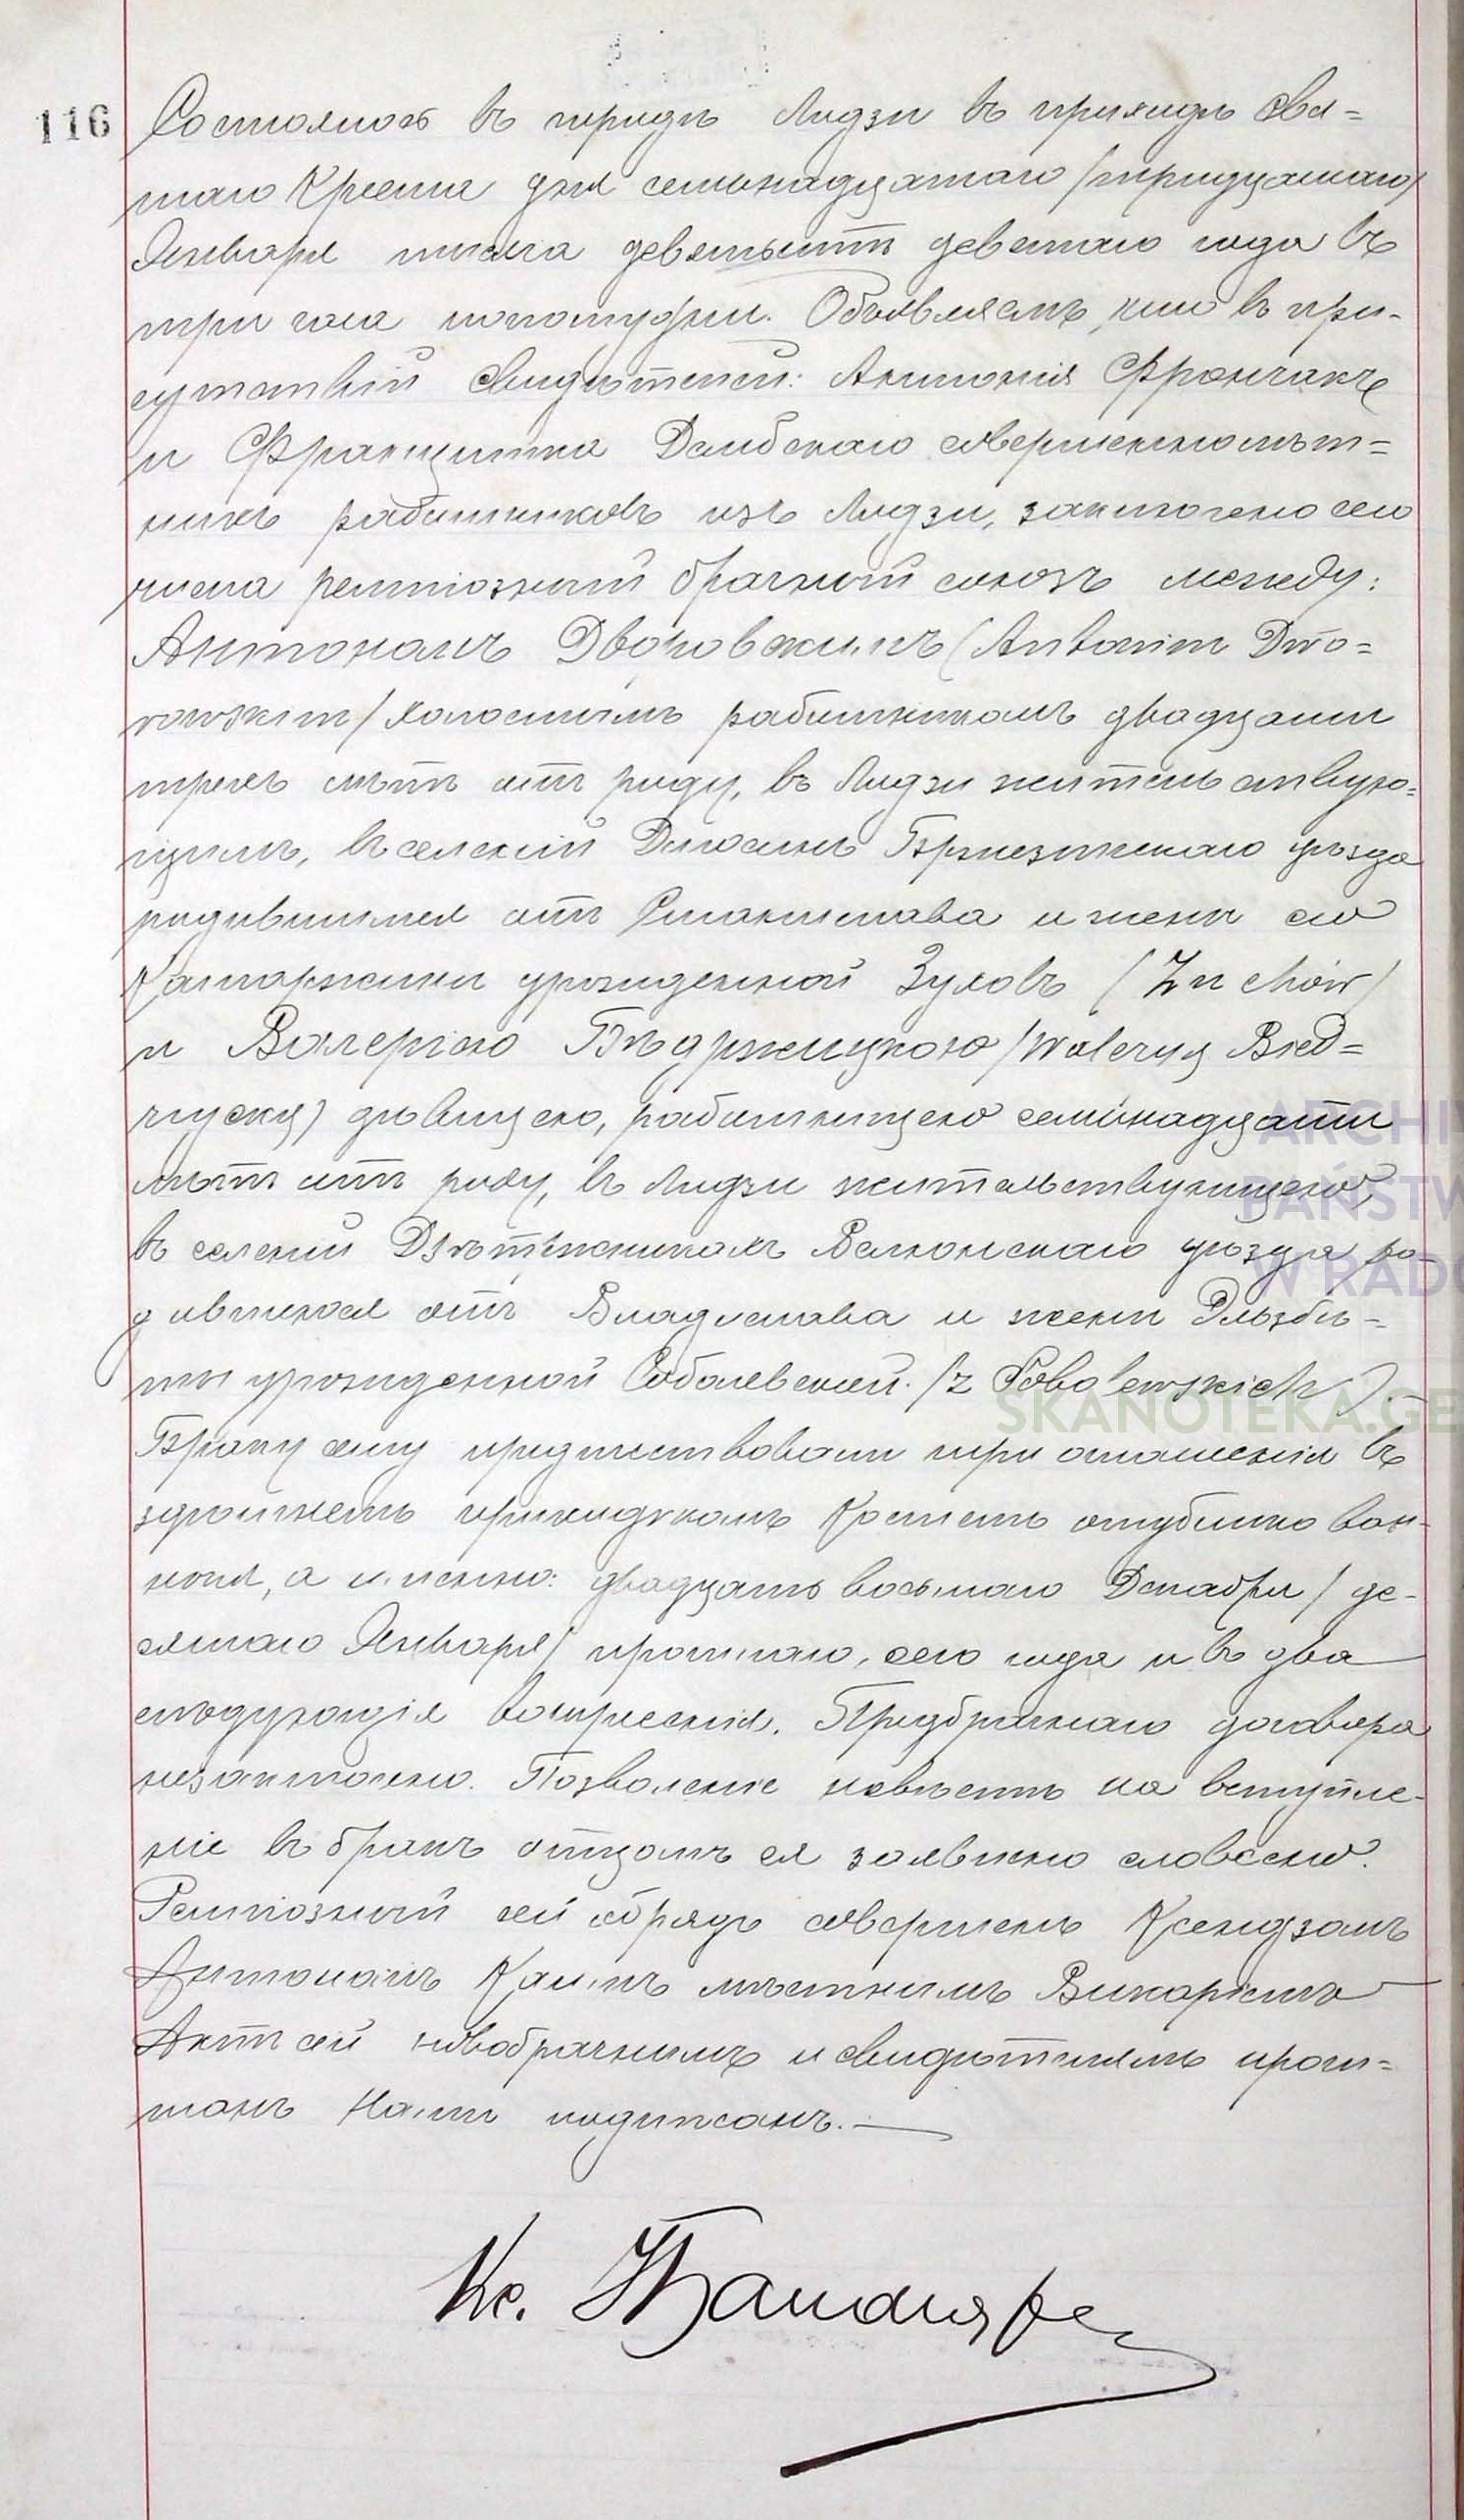 116
Состоялось въ городѣ Лодзи въ приходѣ Свя=
таго Креста дня семьнадцатаго /тридцатаго/
Января тысяча девятьсотъ девятаго года въ
три часа пополудни. Объявляемъ, что въ при-
сутствіи свидѣтелей: Антонія Франчакъ
и Францишка Домбскаго совершеннолѣт=
нихъ работниковъ изъ Лодзи, заключено сего
числа религіозный брачный союзъ между:
Антономъ Дворовскимъ (Antonim Dwo=
rowskim/ холостымъ работникомъ двадцати
трехъ лѣтъ отъ роду, въ Лодзи жительствую=
щимъ, въ селеніи Брżезинскаго уѣзда
родившимся отъ Станислава и жены его
Катаржины урожденной Зуховъ (Zuchów/
и Валеріею Бѣдржицкою /Waleryą Bied=
rzycką) дѣвицею, работницею семьнадцати
лѣтъ отъ роду, въ Лодзи жительствующею,
въ селеніи уѣзда ро-
дившеюся отъ Владислава и жены Эльзбѣ-
ты урожденной Соболевской. /z Sobolewskich).-
Браку сему предшествовали три оглашенія въ
здѣшнемъ приходскомъ Костелѣ опубликован-
ныя, а именно: двадцать восьмаго Декабря / де-
сятаго Января/ прошлаго, сего года и въ два
слѣдующія воскресенія. Предбрачнаго договора
незаключено. Позволеніе невѣстѣ на вступле-
ніе въ бракъ отцомъ ея заявлено словесно.
Религіозный сей обрядъ совершенъ Ксендзомъ
Антономъ мѣстнымъ Викаріемъ
Актъ сей новобрачнымъ и свидѣтелямъ прочи=
танъ Нами подписанъ.—
Кс.
ARCHI
PAŃSTW
W RADO
SKANOTEKA.GE